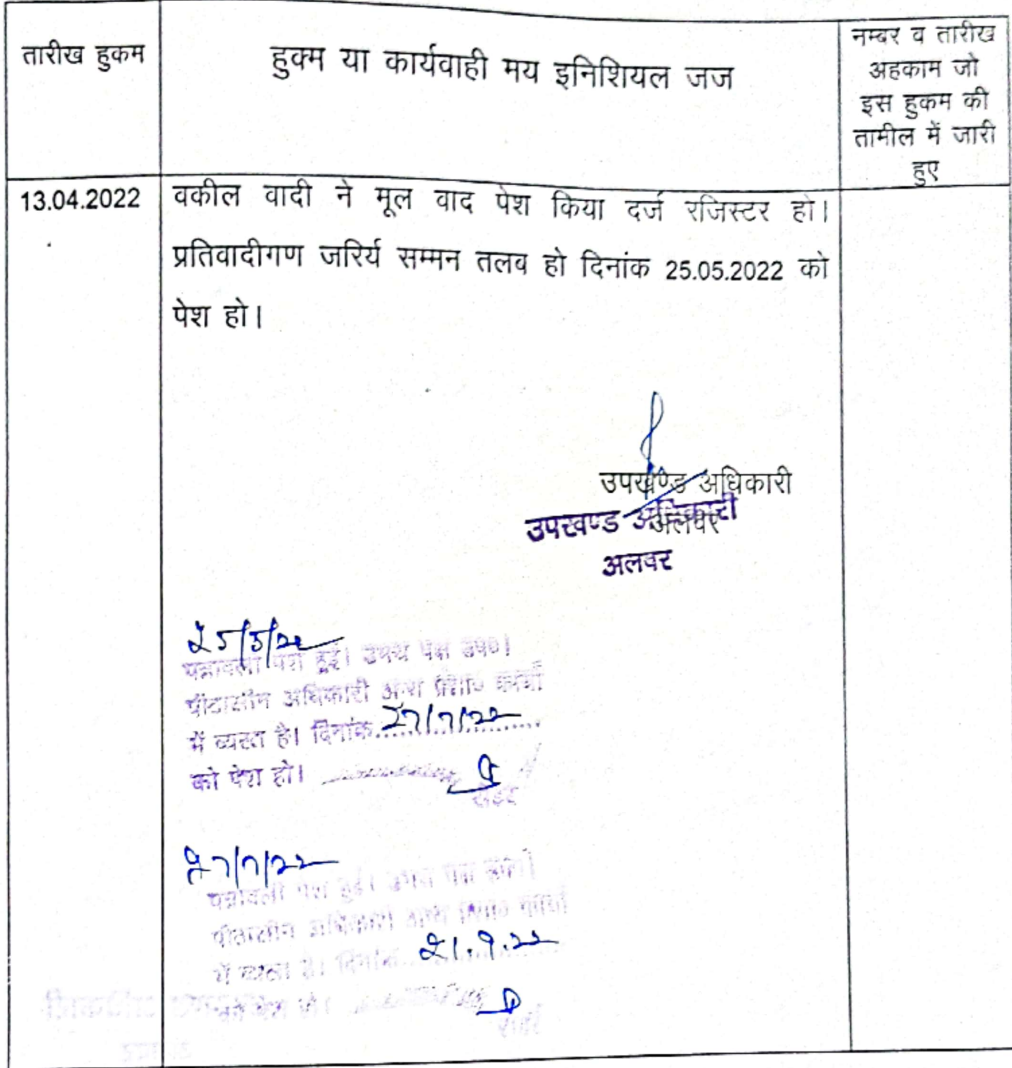 तारीख हुकम
हुक्म या कार्यवाही मय इनिशियल जज
नम्बर व तारीख
अहकाम जो
इस हुकम की
तामील में जारी
हुए
13.04.2022
वकील वादी ने मूल वाद पेश किया दर्ज रजिस्टर हो।
प्रतिवादीगण जरिये सम्मन तलब हो दिनांक 25.05.2022 को
पेश हो।
उपखण्ड अधिकारी
अलवर
उपखण्ड अधिकारी
अलवर
25/5/22
पत्रावली पेश हुई। उभय पक्ष उप०।
पीठासीन अधिकारी अन्य प्रशा० कार्यों
में व्यस्त है। दिनांक 27/7/22
को पेश हो।
रीडर
27/7/22
पत्रावली पेश हुई। उभय पक्ष उप०।
पीठासीन अधिकारी अन्य प्रशा० कार्यों
में व्यस्त है। दिनांक 21.9.22
को पेश हो।
रीडर